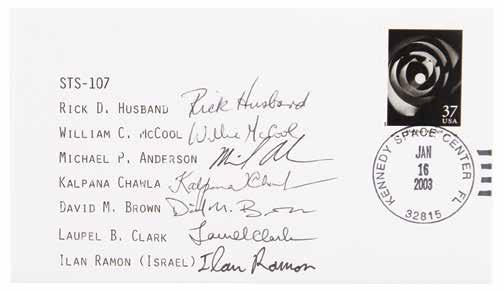 37
USA
STS-107
RICK D. HUSBAND Rick Husband
WILLIAM C. MCCOOL Willie McCool
MICHAEL P. ANDERSON
KALPANA CHAWLA Kalpana Chawla
DAVID M. BROWN David M. Brown
LAUREL B. CLARK Laurel Clark
ILAN RAMON (ISRAEL) Ilan Ramon
KENNEDY SPACE CENTER FL
JAN
16
2003
32815